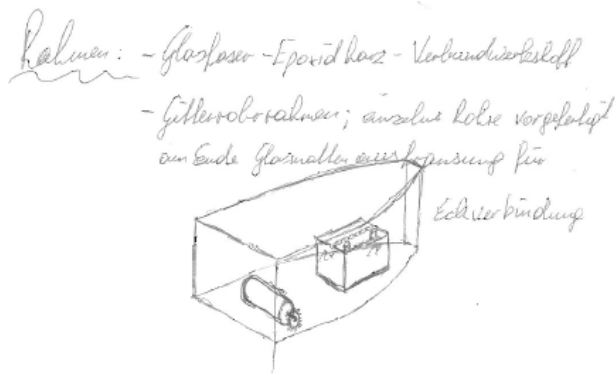 Rahmen: - Glasfaser - Epoxidharz - Verbundwerkstoff
- Gitterrohrrahmen; einzelne Rohre vorgefertigt
am Ende Glasmatten ausfransung für
Eckverbindung